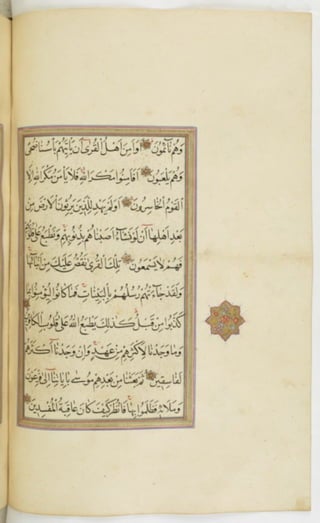 وَهُمْ نَائِمُونَ أَوَأَمِنَ أَهْلُ الْقُرَىٰ أَنْ يَأْتِيَهُمْ بَأْسُنَا ضُحًى
وَهُمْ يَلْعَبُونَ أَفَأَمِنُوا مَكْرَ اللَّهِ فَلَا يَأْمَنُ مَكْرَ اللَّهِ إِلَّا
الْقَوْمُ الْخَاسِرُونَ أَوَلَمْ يَهْدِ لِلَّذِينَ يَرِثُونَ الْأَرْضَ مِنْ
بَعْدِ أَهْلِهَا أَنْ لَوْ نَشَاءُ أَصَبْنَاهُمْ بِذُنُوبِهِمْ وَنَطْبَعُ عَلَىٰ قُلُوبِهِمْ
فَهُمْ لَا يَسْمَعُونَ تِلْكَ الْقُرَىٰ نَقُصُّ عَلَيْكَ مِنْ أَنْبَائِهَا
وَلَقَدْ جَاءَتْهُمْ رُسُلُهُمْ بِالْبَيِّنَاتِ فَمَا كَانُوا لِيُؤْمِنُوا بِمَا
كَذَّبُوا مِنْ قَبْلُ كَذَٰلِكَ يَطْبَعُ اللَّهُ عَلَىٰ قُلُوبِ الْكَافِرِينَ
وَمَا وَجَدْنَا لِأَكْثَرِهِمْ مِنْ عَهْدٍ وَإِنْ وَجَدْنَا أَكْثَرَهُمْ
لَفَاسِقِينَ ثُمَّ بَعَثْنَا مِنْ بَعْدِهِمْ مُوسَىٰ بِآيَاتِنَا إِلَىٰ فِرْعَوْنَ
وَمَلَئِهِ فَظَلَمُوا بِهَا فَانْظُرْ كَيْفَ كَانَ عَاقِبَةُ الْمُفْسِدِينَ